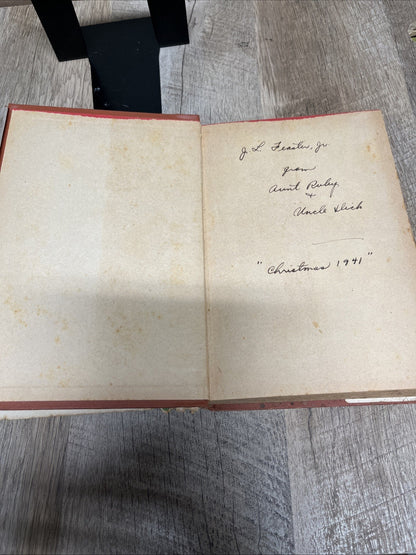 J. L. Feaster, Jr.
from
Aunt Ruby
+
Uncle Dick
"Christmas 1941"